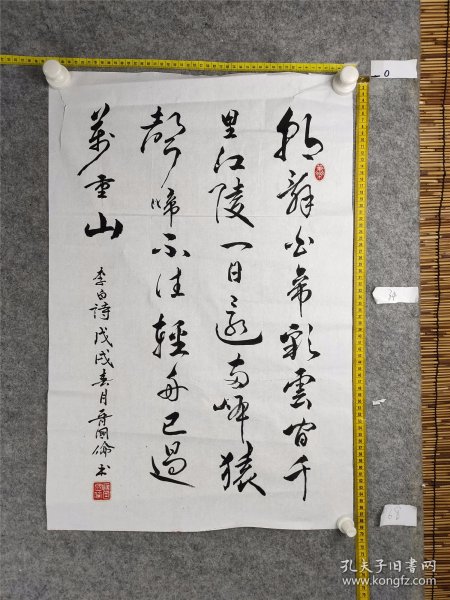 朝辭白帝彩雲间千
里江陵一日還兩岸猿
聲啼不住輕舟已過
萬重山
李白詩 戊戌春月 國倫书
0
68
孔夫子旧书网
www.kongfz.com